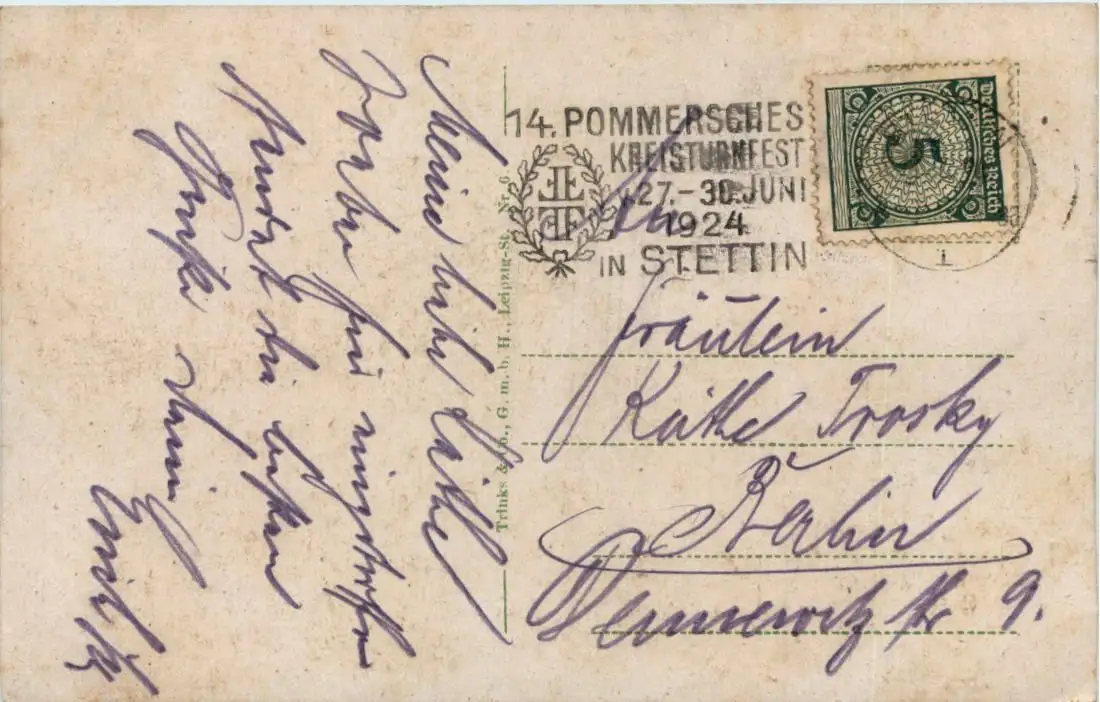 Meine liebe Käthe
Soeben hier
sendet die besten
Grüße
14. POMMERSCHES
KREISTURNFEST
27.-30. JUNI
1924
IN STETTIN
Deutsches Reich
5
Trinks & Co., G. m. b. H., Leipzig-St. Nr. 6
Fräulein
Käthe Trosky
Berlin
Dennewitz Str 9.